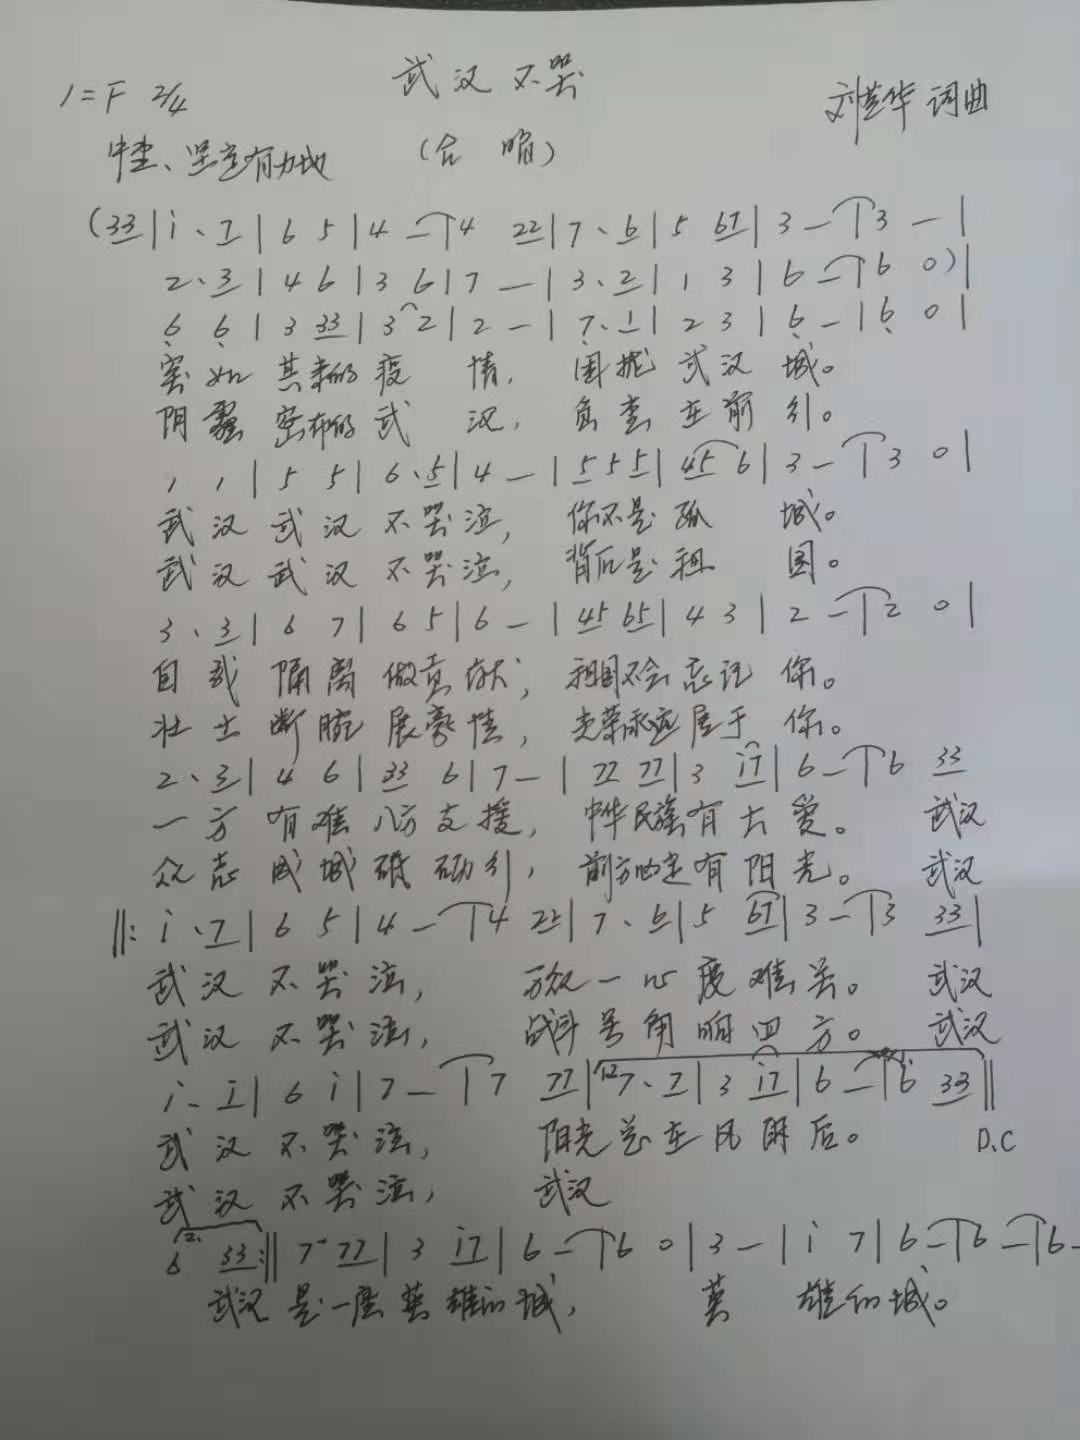 武汉不哭
1=F 2/4
刘芝华 词曲
中速、坚定有力地
(合唱)
(33|i·7|65|4-|4 22|7·6|5 67|3-|3-|
2·3|46|36|7-|3·2|13|6-|60)|
66|3 33|32|2-|7·1|23|6-|60|
突如其来的疫情,围拢武汉城。
阴霾密布的武汉,负重在前行。
11|55|6·5|4-|555|45 6|3-|30|
武汉武汉不哭泣,你不是孤城。
武汉武汉不哭泣,背后是祖国。
3·3|67|65|6-|45 65|43|2-|20|
自我隔离做贡献,祖国不会忘记你。
壮士断腕展豪情,光荣永远属于你。
2·3|46|33 6|7-|77 77|3 i7|6-|6 33
一方有难八方支援,中华民族有大爱。武汉
众志成城砥砺行,前方一定有阳光。武汉
‖:i·7|65|4-|4 22|7·6|5 67|3-|3 33|
武汉不哭泣,万众一心度难关。武汉
武汉不哭泣,战斗号角响四方。武汉
i·i|6i|7-|7 77|1.2. 7·7|3 i7|6-|6 33‖
武汉不哭泣,阳光总在风雨后。 D.C
武汉不哭泣,武汉
2. 6 33:‖7·77|3 i7|6-|60|3-|i7|6-|6-|6-
武汉是一座英雄的城,英雄的城。